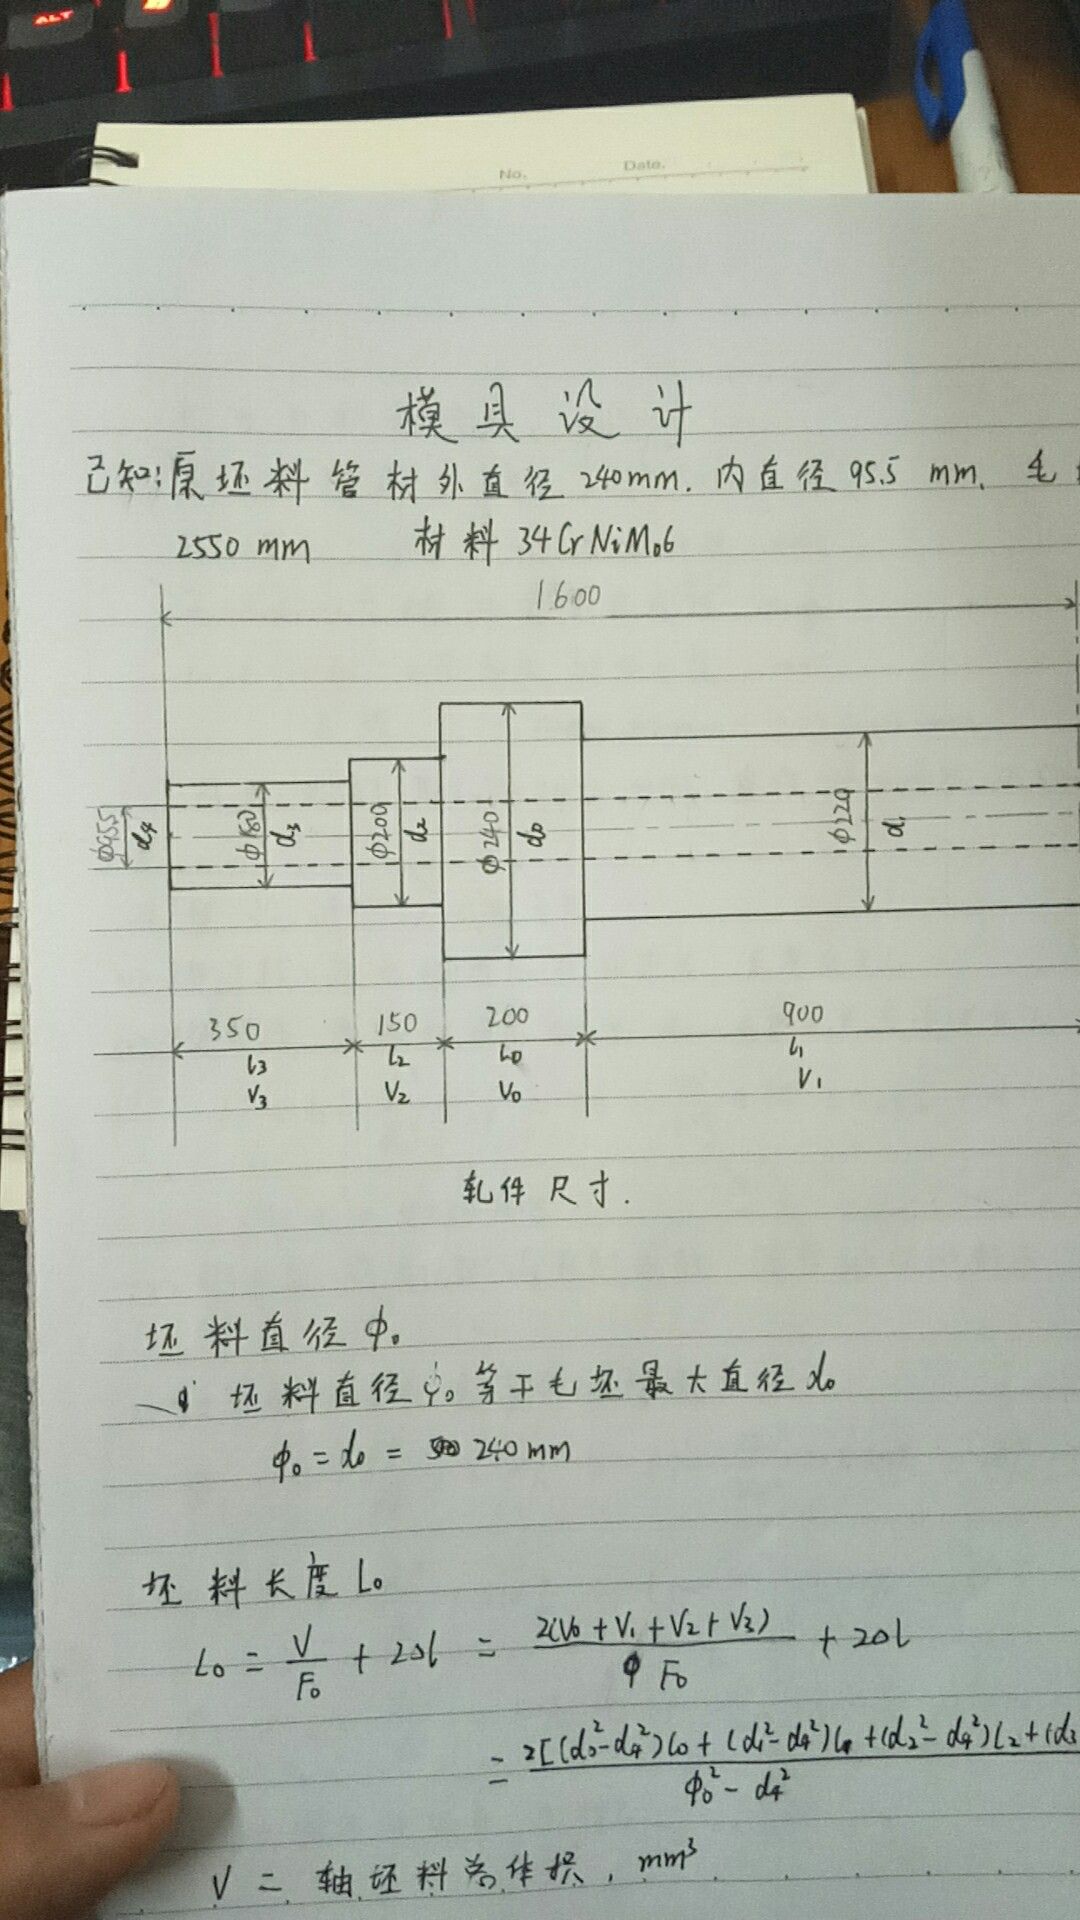 ALT
No. Date.
模具设计
已知:原坯料管材外直径240mm. 内直径95.5 mm.
2550 mm 材料34CrNiMo6
1600
φ95.5 d4 φ180 d3 φ200 d2 φ240 d0 φ220 d1
350 150 200 900
l3 l2 l0 l1
V3 V2 V0 V1
轧件尺寸.
坯料直径φ0
坯料直径φ0等于毛坯最大直径d0
φ0 = d0 = 240mm
坯料长度L0
L0 = V/F0 + 2Δl = 2(V0 + V1 + V2 + V3)/F0 + 2Δl
= 2[(d0²-d4²)l0 + (d1²-d4²)l1 + (d2²-d4²)l2 + (d3
φ0² - d4²
V = 轴坯料总体积, mm³